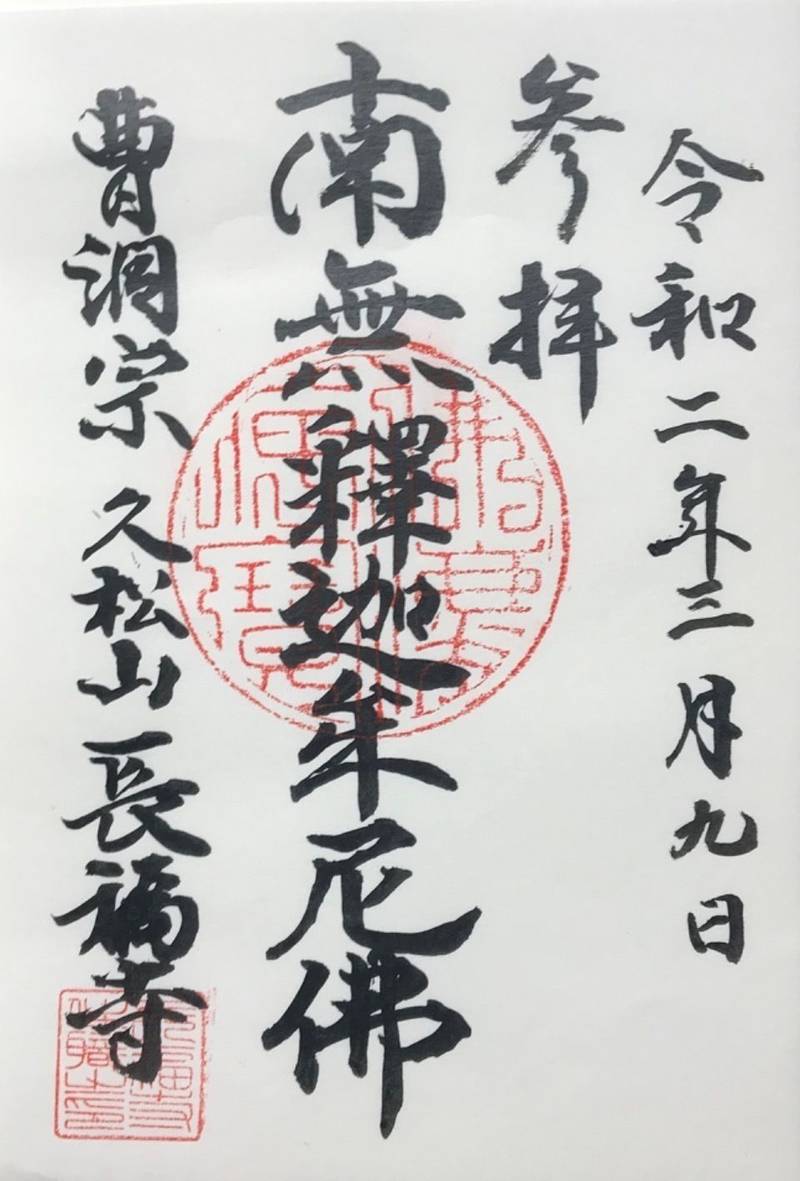 令和二年三月九日
参拝
南無釋迦牟尼佛
曹洞宗 久松山 長福寺